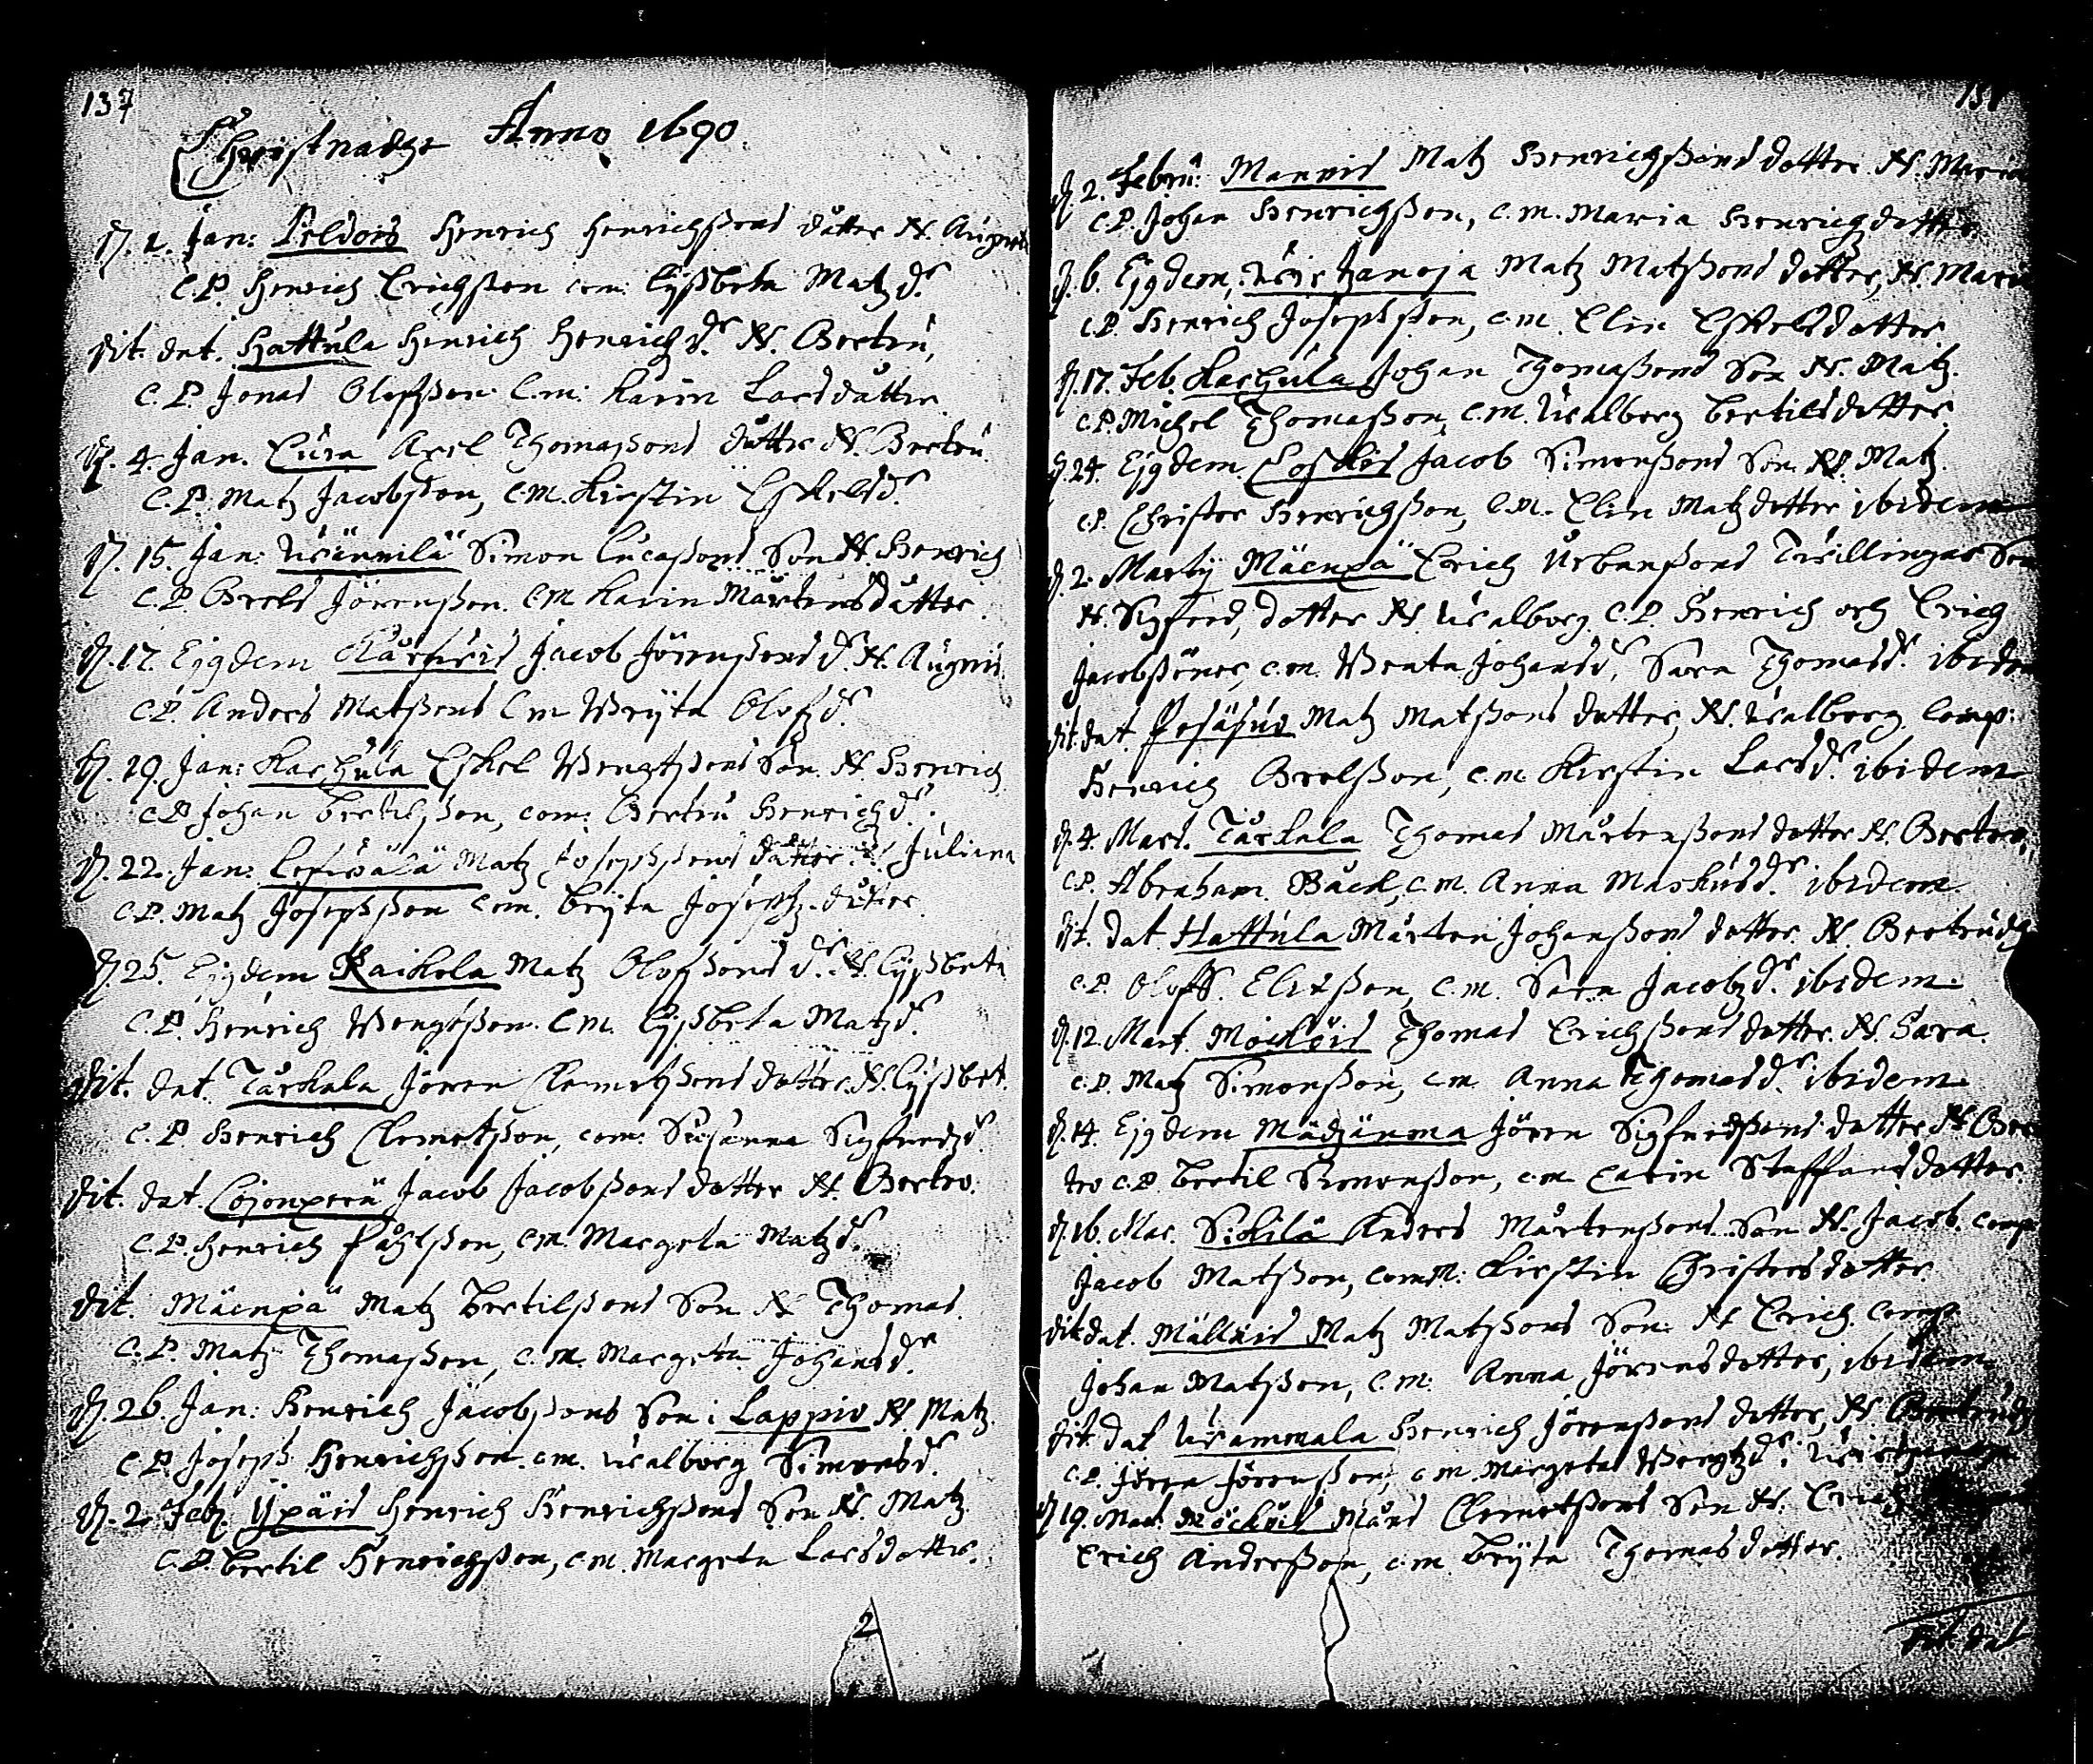 137
Christnadhe Anno 1690
d. 1. Jan: Peldois Henrich Henrichßons dotter N. Aúgnet
C.P. Henrich Erichßon c.m: Lijßbeta Matz dr.
dit. dat. Hattula Henrich Henrichz dr. N. Gertrú,
C.P. Jonas Olofsson. C.m: Karin Larsdåtter.
d. 4. Jan. Eúra Axel Thomaßons dotter N. Gertrú.
C.P. Matz Jacobsson, C.M. Kirstin Eskelsdr.
d. 15. Jan: Wännilä Simon Lúcaßons Son N. Henrich
C.P. Grels Jörenßon. CM Karin Mårtensdåtter.
d. 17. Ejgdem Jacob Jörenßons dr. N. Aúgnis.
C.P. Anders Matßons Cm Brijta Olofzdr.
d. 19. Jan: Karhúla Eskel Bengtßons Son. N. Henrich
C.P Johan Bertilsson, com: Gertrú Henrichdr.
d. 22. Jan: Matz Josephsons dåtter N. Júliana
C.P. Matz Josephsson Com. Brijta Josephz dåtter.
d. 25. Ejgdem Raikola Matz Olofßons dr. N. Lijßbeta
C.P. Henrich Bengtßon. CM. Lijßbeta Matzdr.
dit. dat. Tårkala Jören Clemetzsons dotter. N. Lijßbet.
C.P. Henrich Clemetßon, com: Súsanna Sigfredzdr.
dit. dat. Cojonperä Jacob Jacobßons dotter N. Gertro.
C.P. Henrich Påhlßon, CM. Margeta Matzdr.
dit Mäenpä Matz Bertilßons Son N Thomas.
C.P. Matz Thomaßon, C.M. Margeta Johansdr.
d. 26. Jan: Henrich Jacobßons Son i Lappio N Matz.
C.P. Joseph Henrichßon. c.m. Walborg Simonsdr.
d. 2. Feb. Ypäis Henrich Henrichßons Son N. Matz.
C.P. Bertil Henrichßon, c.m. Margeta Larsdotter.
2
d. 2. Febrú: Mannis Matz Henrichßons dotter N. Maria
C.P. Johan Henrichßon, C.m. Maria Henrichz dotter.
d. 6. Ejgdem, Wirtzanoja Matz Matßons dotter, N. Maria
C.P. Henrich Josephsson, c.m. Elin Eskelsdotter.
d. 17. Feb. Karhúla Johan Thomaßons Son N. Matz.
C.P. Michel Thomaßon, C.M. Walborg Bertilsdotter.
d. 24. Ejgdem. Jacob Simonßons Son N. Matz.
C.P. Christer Henrichßon, C.M. Elin Matzdotter ibidem
d. 2. Martij Mäenpä Erich Urbanßons Twillingar Son
N. Sigfred, dotter N Walborg C.P. Henrich och Erich
Jacobßöner, c.m. Beata Johansdr. Sara Thomasdr. ibidem
dit. dat. Matz Matßons dotter, N. Walborg Comp:
Henrich Grelßon, c.m Kirstin Larsdr. ibidem
d. 4. Mart. Tårkala Thomas Mårtenßons dotter N. Gertro,
C.P. Abraham Bäck, c.m. Anna Markúsdr. ibidem.
dit. dat. Hattúla Mårten Johanßons dotter. N. Gertrúdh
C.P. Oloff Elixßon, C.m. Sara Jacobzdr. ibidem.
d. 12. Mart. Möcköis Thomas Erichßons dotter. N. Sara.
C.P. Matz Simonßon, c.m. Anna Thomasdr. ibidem.
d. 14. Ejgdem Mädzänma Jören Sigfredßons dotter N Ger-
tro C.P. Bertil Simonßon, c.m. Carin Staffans dotter.
d. 16. Mar. Sickilä Anders Mårtenßons Son N. Jacob. Comp.
Jacob Matßon, ComM: Kirstin Christersdotter.
dit dat. Mällais Matz Matßons Son N Erich. Comp.
Johan Matßon, C.m: Anna Jörensdotter, ibidem.
dit. dat Wammala Henrich Jörenßons dotter, N. Gertrúdh
C.P. Jören Jörenßon, c.m. Margeta Bengtzdr.
d 19. Mar. Möcköis Måns Clemetßons Son N. Erich
Erich Anderßon, c.m. Brijta Thomasdotter.
dit. dat